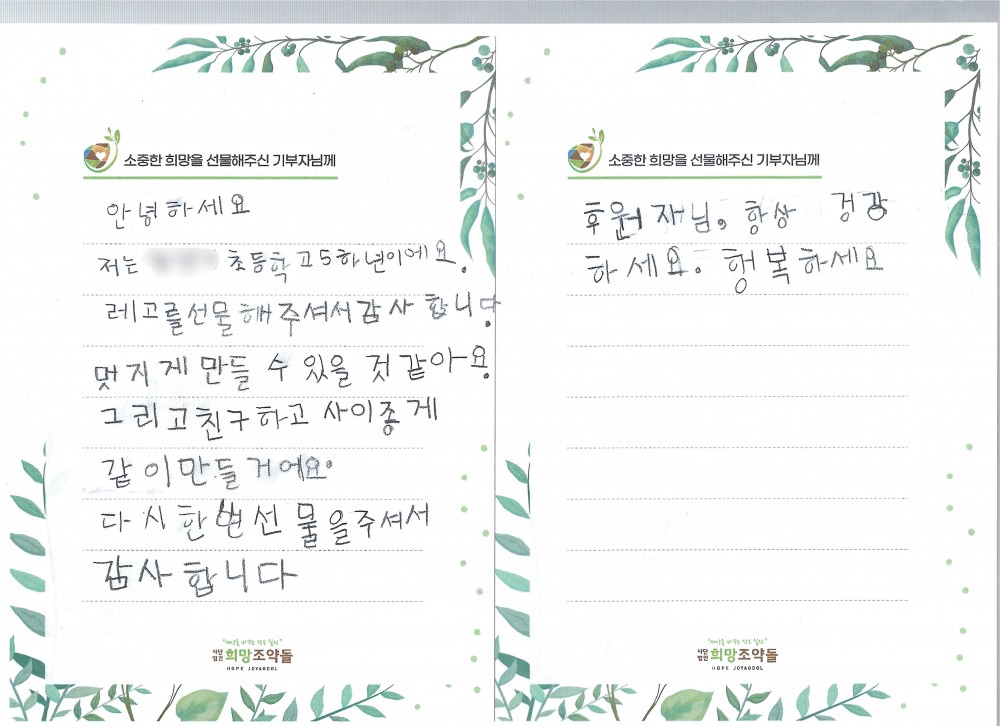 소중한 희망을 선물해주신 기부자님께
안녕하세요
저는 초등학고5하년이에요.
레고를선물해주셔서감사 합니다
멋지게 만들 수 있을 것 같아요.
그리고친구하고 사이종게
같이만들거에요.
다시한번선물을주셔서
감사합니다
사단법인 희망조약돌
HOPE JOYAGDOL
소중한 희망을 선물해주신 기부자님께
후원자님, 항상 겅강
하세요. 행복하세요
사단법인 희망조약돌
HOPE JOYAGDOL